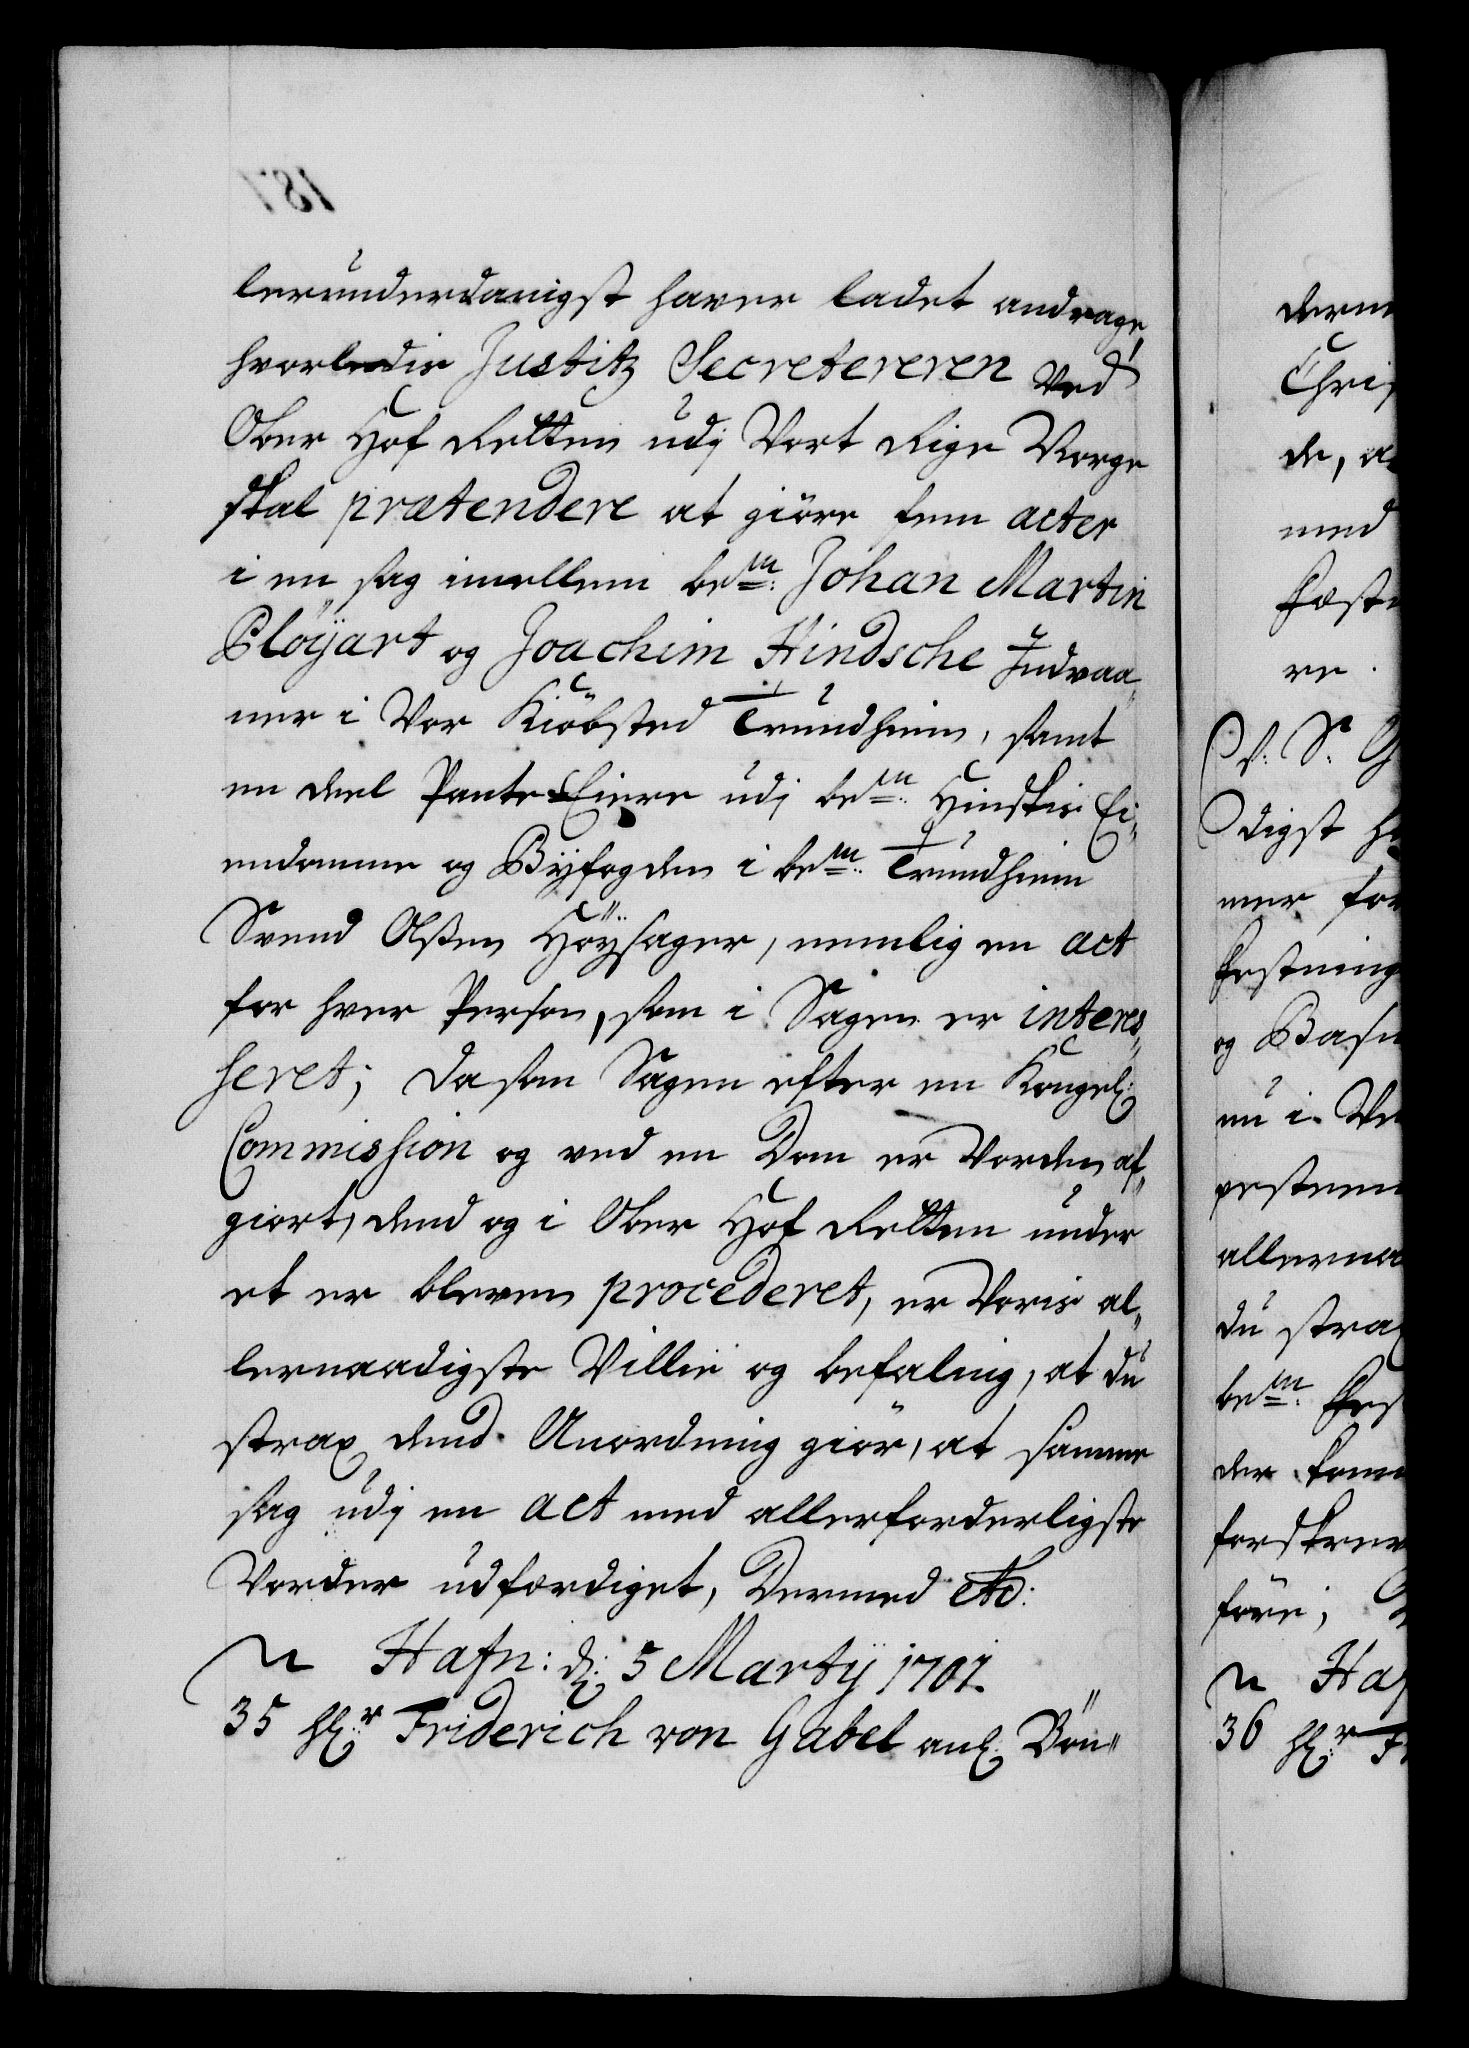 lerunderdanigst haver ladet andrage,
hvorledis Justitz Secretereren ved
Ober Hof Retten udj Vort Rige Norge
skal prætendere at giöre fem acter
i en sag imellem bem:te Johan Martin
Plöÿart og Joachim Hindsche Indvaa„
ner i Vor Kiöbsted Trundhiem, samt
en deel Pante-Eiere udj bem:te Hinskis Ei„
endomme og Bÿfogden i bem:te Trundhiem
Svend Olsen Höysager, nemlig en act
for hver Person, som i Sagen er interes„
seret; Da som Sagen efter en Kongel:
Commission og ved en Dom er Vorden af„
giort, dend og i Ober Hof Retten under
et er bleven procederet, er Voris al„
lernaadigste Villie og befaling, at du
strax dend Anordning giör, at samme
sag udj en act med allerforderligste
Vorder udfærdiget, Dermed etc:
Hafn: d: 5 Martÿ 1707.
35 H:r Friderich von Gabel anl: Bön„
Chris
de, a
med
fæst
re.
V. S. G
digst h
mer for
festning
og Basn
nu i Ve
allerna
du strax
bem:te Fes
der kom
forskrev
före;
Haf
36 H:r F